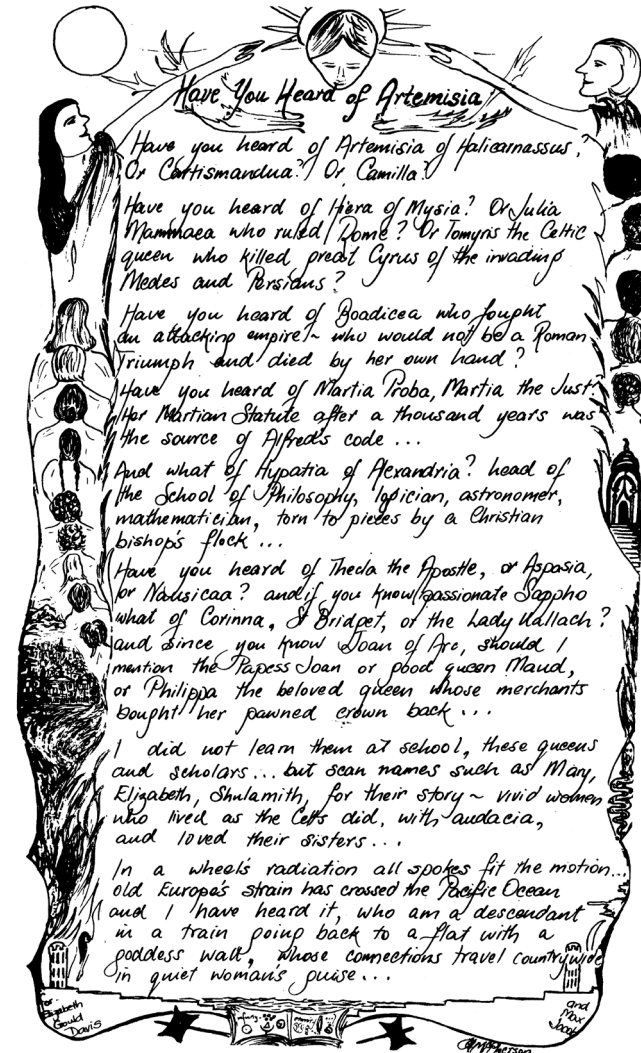 Have You Heard of Artemisia
Have you heard of Artemisia of Halicarnassus?
Or Cartismandua? Or Camilla?
Have you heard of Hiera of Mysia? Or Julia
Mammaea who ruled Rome? Or Tomyris the Celtic
queen who killed great Cyrus of the invading
Medes and Persians?
Have you heard of Boadicea who fought
an attacking empire ~ who would not be a Roman
Triumph and died by her own hand?
Have you heard of Martia Proba, Martia the Just?
Her Martian Statute after a thousand years was
the source of Alfred's code ...
And what of Hypatia of Alexandria? head of
the School of Philosophy, logician, astronomer,
mathematician, torn to pieces by a Christian
bishop's flock ...
Have you heard of Thecla the Apostle, or Aspasia,
or Nausicaa? and if you know passionate Sappho
what of Corinna, St Bridget, or the Lady Uallach?
and since you know Joan of Arc, should I
mention the Papess Joan or good queen Maud,
or Philippa the beloved queen whose merchants
bought her pawned crown back ...
I did not learn them at school, these queens
and scholars ... but scan names such as Mary,
Elizabeth, Shulamith, for their story ~ vivid women
who lived as the Celts did, with audacia,
and loved their sisters ...
In a wheel's radiation all spokes fit the motion...
old Europa's strain has crossed the Pacific Ocean
and I have heard it, who am a descendant
in a train going back to a flat with a
goddess wall, whose connections travel countrywide
in quiet woman's guise ...
for Elizabeth
Gould
Davis
and
Max